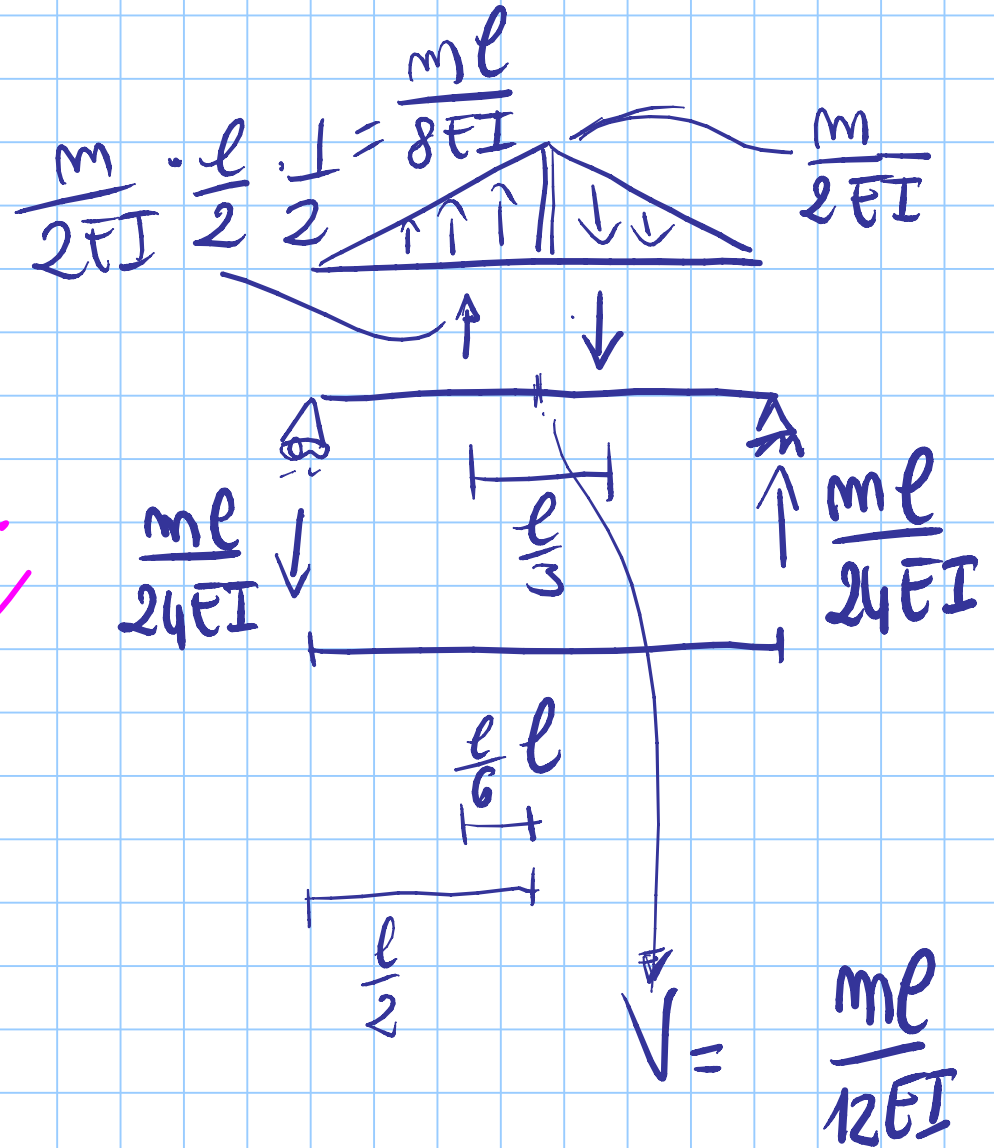 m/2EI · ℓ/2 · 1/2 = mℓ/8EI
m/2EI
ℓ/3
mℓ/24EI
mℓ/24EI
ℓ/6
ℓ
ℓ/2
V = mℓ/12EI